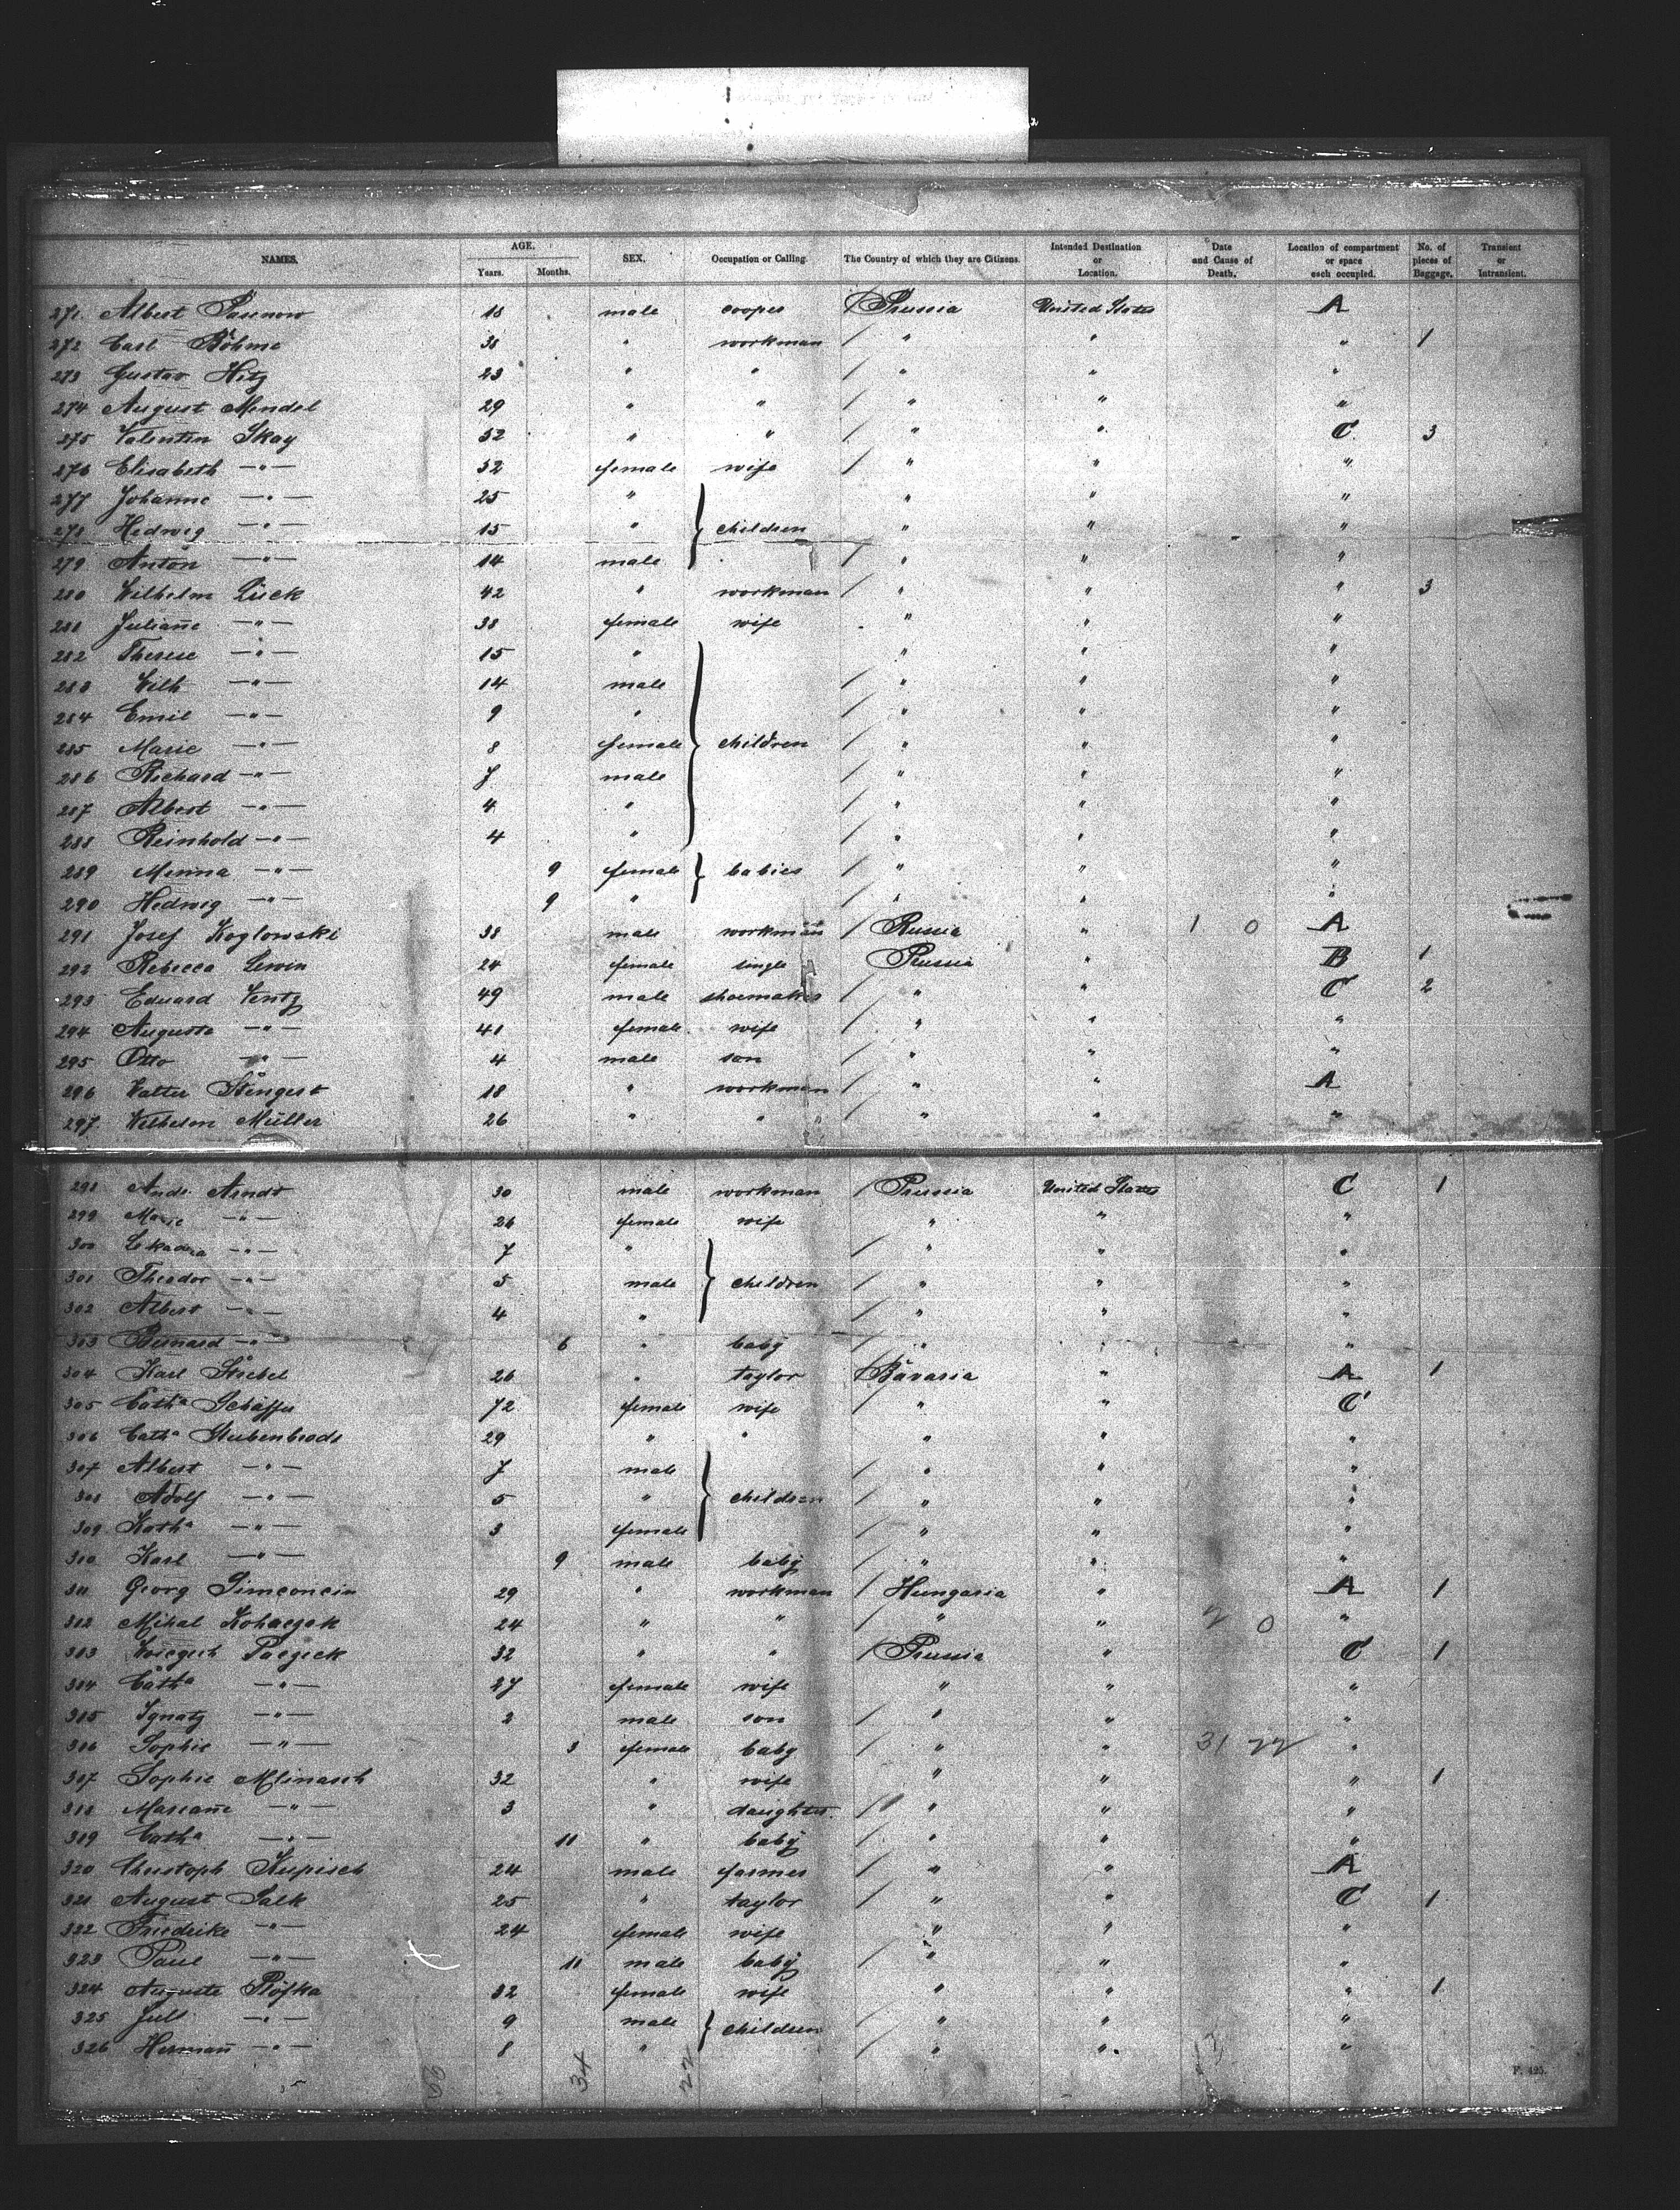 NAMES. AGE. Years. Months. SEX. Occupation or Calling. The Country of which they are Citizens. Intended Destination or Location. Date and Cause of Death. Location of compartment or space each occupied. No. of pieces of Baggage. Transient or Intransient.
271. Albert Pasenow 18 male cooper / Prussia United States A
272 Carl Böhme 38 " workman / " " " 1
273 Gustav Hitz 23 " " / " " "
274 August Mendel 29 " " / " " "
275 Valentin Skay 52 " " / " " C 3
276 Elisabeth –"– 52 female wife / " " "
277 Johanne –"– 25 " " " "
278 Hedwig –"– 15 " children " " "
279 Anton –"– 14 male / " " "
280 Wilhelm Lück 42 " workman / " " " 3
281 Juliañe –"– 38 female wife " " "
282 Therese –"– 15 " " " "
283 Wilh –"– 14 male / " " "
284 Emil –"– 9 " / " " "
285 Marie –"– 8 female children / " " "
286 Richard –"– 7 male / " " "
287 Albert –"– 4 " / " " "
288 Reinhold –"– 4 " / " " "
289 Minna –"– 9 female babies / " " "
290 Hedwig –"– 9 " / " " "
291 Josef Koglowski 38 male workman / Russia " 1 0 A
292 Rebecca Lewin 24 female single Prussia " B 1
293 Eduard Ventz 49 male shoemaker / " " C 2
294 Auguste –"– 41 female wife / " " "
295 Otto –"– 4 male son / " " "
296 Walter Stengert 18 " workman / " " A
297. Wilhelm Müller 26 " " / " " "
298 Andr. Arndt 30 male workman / Prussia United States C 1
299 Marie –"– 26 female wife " " "
300 –"– 7 " / " " "
301 Theodor –"– 5 male children / " " "
302 Albert –"– 4 " / " " "
303 Bernard –"– 6 " baby / " " "
304 Karl Strebel 26 " taylor / Bavaria " A 1
305 Catha Schäffer 72 female wife / " " C
306 Catha Stubenbrodt 29 " " " " "
307 Albert –"– 7 male / " " "
308 Adolf –"– 5 " children / " " "
309 Katha –"– 3 female / " " "
310 Karl –"– 9 male baby / " " "
311 Georg Simconcin 29 " workman / Hungaria " A 1
312 Mihal Kohaczek 24 " " / " " 2 0 "
313 Paczick 32 " " / Prussia " C 1
314 Catha –"– 27 female wife " " "
315 Ignatz –"– 2 male son / " " "
316 Sophie –"– 3 female baby / " " 31 22 "
317 Sophie Mlinasch 32 " wife " " " 1
318 Mariañe –"– 3 " daughter / " " "
319 Catha –"– 11 " baby / " " "
320 Christoph Kupisch 24 male farmer / " " A
321 August Salk 25 " taylor / " " C 1
322 Friedrike –"– 24 female wife " " "
323 Paul –"– 11 male baby / " " "
324 Auguste Plöfka 32 female wife " " " 1
325 Jul –"– 9 male children / " " "
326 Hermañ –"– 8 " / " " "
34 22
F. 495.